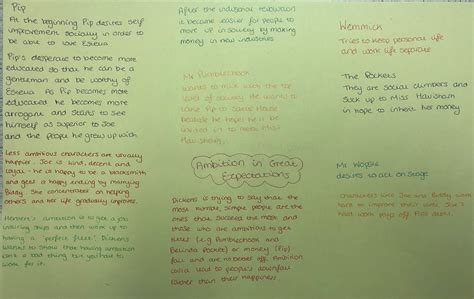 Pip
At the beginning Pip desires self
improvement socially in order to
be able to love Estella
Pip's desperate to become more
educated so that he can be a
gentleman and be worthy of
Estella. As Pip becomes more
educated he becomes more
arrogant and starts to see
himself as superior to Joe
and the people he grew up with.
Less ambitious characters are usually
happier. Joe is kind, decent and
loyal - he is happy to be a blacksmith
and gets a happy ending by marrying
Biddy. She concentrates on helping
others and her life gradually improves.
ambition is to get a job
ships and then work up to
having a 'perfect fleet'. Dickens
wants to show that having ambition
isn't a bad thing but you have to
work for it.
After the industrial revolution
it became easier for people to
move up in society by making
money in new industries
Mr Pumblechook
wants to
of society. He wants to
take Pip to House
because he hopes he'll be
invited in to meet Miss
Havisham.
Ambition in Great
Expectations
Dickens is trying to say that the
most humble, simple people are the
ones that succeed the most and
those who are ambitious to get
titles (e.g Pumblechook and
Belinda Pocket) or money (Pip)
fail and are no better off. Ambition
could lead to people's downfall
rather than their happiness
Wemmick
Tries to keep personal life
and work life separate
The Pockets
They are social climbers and
suck up to Miss Havisham
in hope to inherit her money
Mr Wopsle
desires to act on stage
Characters like Joe and Biddy work
hard to improve their
hard work pays off